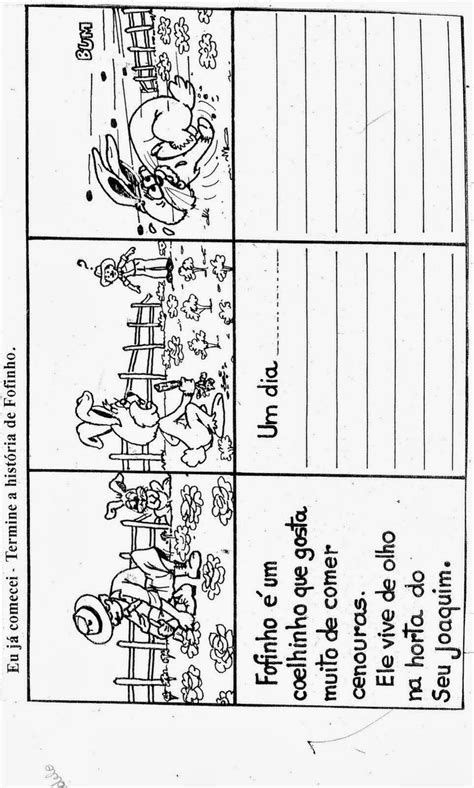 Eu já comecei - Termine a história de Fofinho.
BUM
Fofinho é um
coelhinho que gosta
muito de comer
cenouras.
Ele vive de olho
na horta do
Seu Joaquim.
Um dia